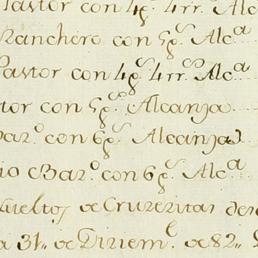 Pastor con 4p.s 4rr.s Alc
Ranchero con 5p.s Alc.a
Pastor con 4p.s 4rr.s Alc.a
tor con 5p.s Alcanza
Bar.o con 6p.s Alcanza
io Bar.o con 6p.s Alc.a
de Cruzezitas des
a 31,, de Diziem.e de 82,,